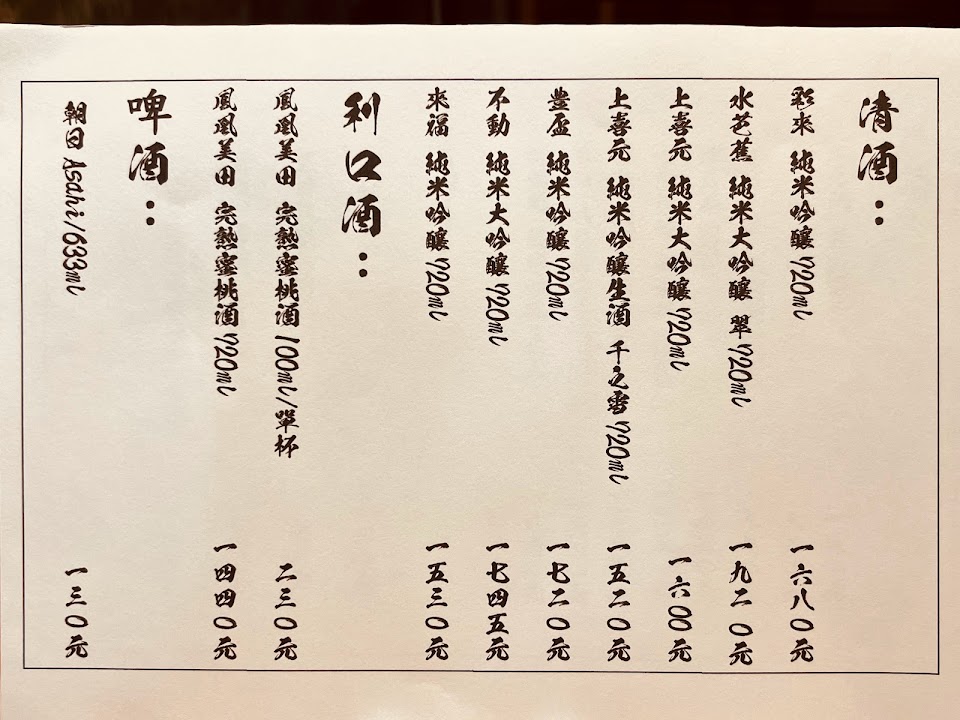 清酒：
彩來 純米吟釀720ml 一六八〇元
水芭蕉 純米大吟釀 翠720ml 一九二〇元
上喜元 純米大吟釀720ml 一六〇〇元
上喜元 純米吟釀生酒 千之雪720ml 一五二〇元
豊盃 純米吟釀720ml 一七二〇元
不動 純米大吟釀720ml 一七四五元
來福 純米吟釀720ml 一五三〇元
利口酒：
鳳凰美田 完熟蜜桃酒100ml/單杯 二三〇元
鳳凰美田 完熟蜜桃酒720ml 一四四〇元
啤酒：
朝日 Asahi/633ml 一三〇元